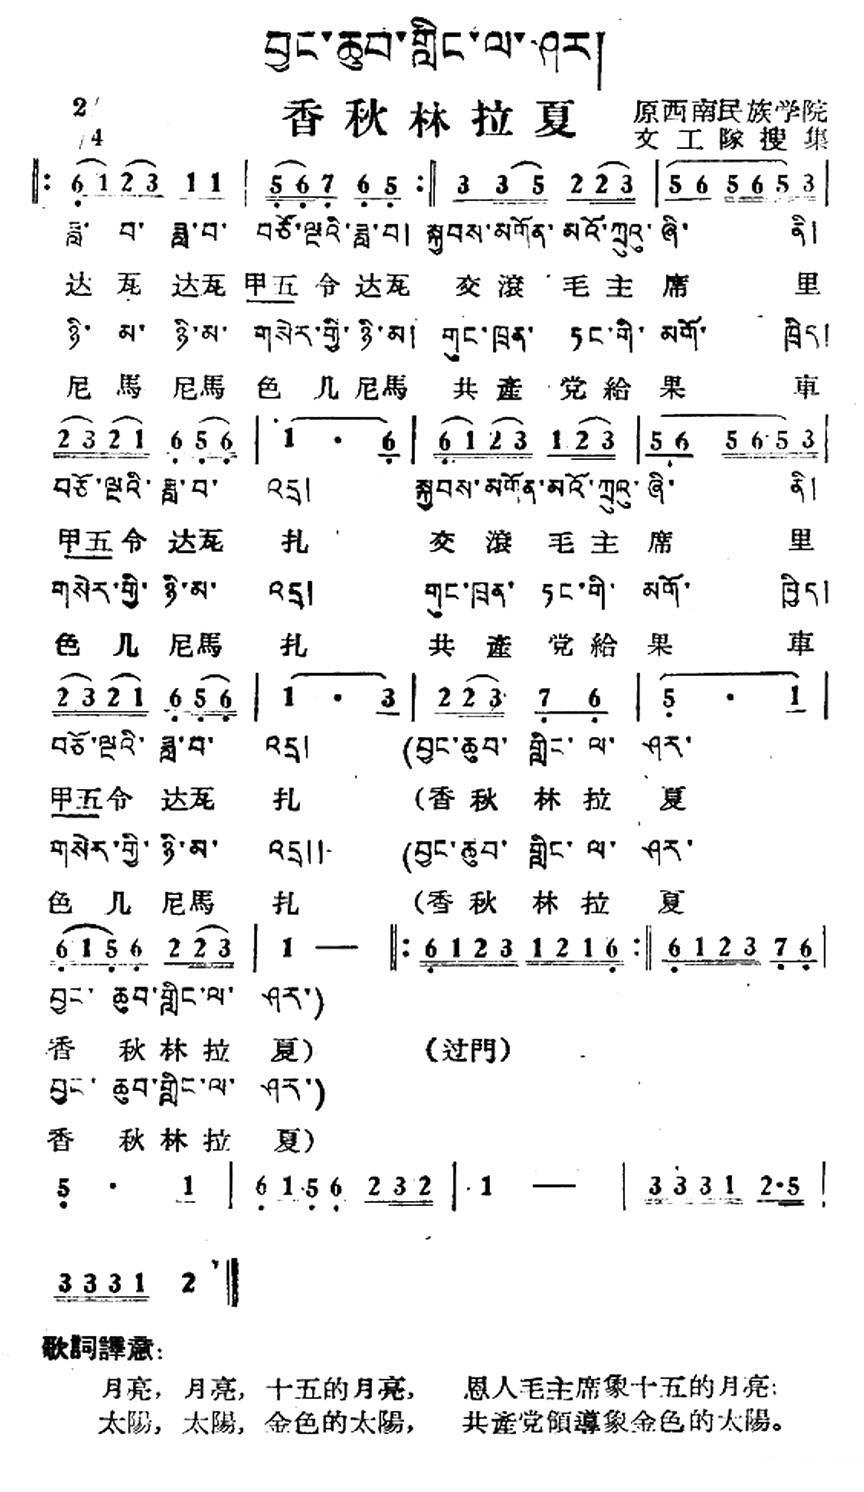 བྱང་ཆུབ་གླིང་ལ་ཤར།
香秋林拉夏
原西南民族学院
文工隊搜集
2/4
𝄆 6 1 2 3 1 1 | 5 6 7 6 5 𝄇 3 3 5 2 2 3 | 5 6 5 6 5 3 |
ཟླ་བ་ཟླ་བ་ བཅོ་ལྔའི་ཟླ་བ། སྐྱབས་མགོན་མའོ་ཀྲུའུ་ཞི་ནི།
达瓦 达瓦 甲五令达瓦 交滾毛主席里
ཉི་མ་ཉི་མ་ གསེར་གྱི་ཉི་མ། གུང་ཁྲན་ཏང་གི་མགོ་ཁྲིད།
尼馬尼馬色几尼馬 共產党給果車
2 3 2 1 6 5 6 | 1 · 6 | 6 1 2 3 1 2 3 | 5 6 5 6 5 3 |
བཅོ་ལྔའི་ཟླ་བ་འདྲ། སྐྱབས་མགོན་མའོ་ཀྲུའུ་ཞི་ནི།
甲五令达瓦扎 交滾毛主席里
གསེར་གྱི་ཉི་མ་འདྲ། གུང་ཁྲན་ཏང་གི་མགོ་ཁྲིད།
色几尼馬扎 共產党給果車
2 3 2 1 6 5 6 | 1 · 3 | 2 2 3 7 6 | 5 · 1 |
བཅོ་ལྔའི་ཟླ་བ་འདྲ། (བྱང་ཆུབ་གླིང་ལ་ཤར་
甲五令达瓦扎 (香秋林拉夏
གསེར་གྱི་ཉི་མ་འདྲ།། (བྱང་ཆུབ་གླིང་ལ་ཤར་
色几尼馬扎 (香秋林拉夏
6 1 5 6 2 2 3 | 1 — 𝄆 6 1 2 3 1 2 1 6 𝄇 6 1 2 3 7 6 |
བྱང་ཆུབ་གླིང་ལ་ཤར་)
香秋林拉夏) (过門)
བྱང་ཆུབ་གླིང་ལ་ཤར་)
香秋林拉夏)
5 · 1 | 6 1 5 6 2 3 2 | 1 — | 3 3 3 1 2·5 |
3 3 3 1 2 ‖
歌詞譯意:
月亮, 月亮, 十五的月亮, 恩人毛主席象十五的月亮;
太陽, 太陽, 金色的太陽, 共產党領導象金色的太陽。